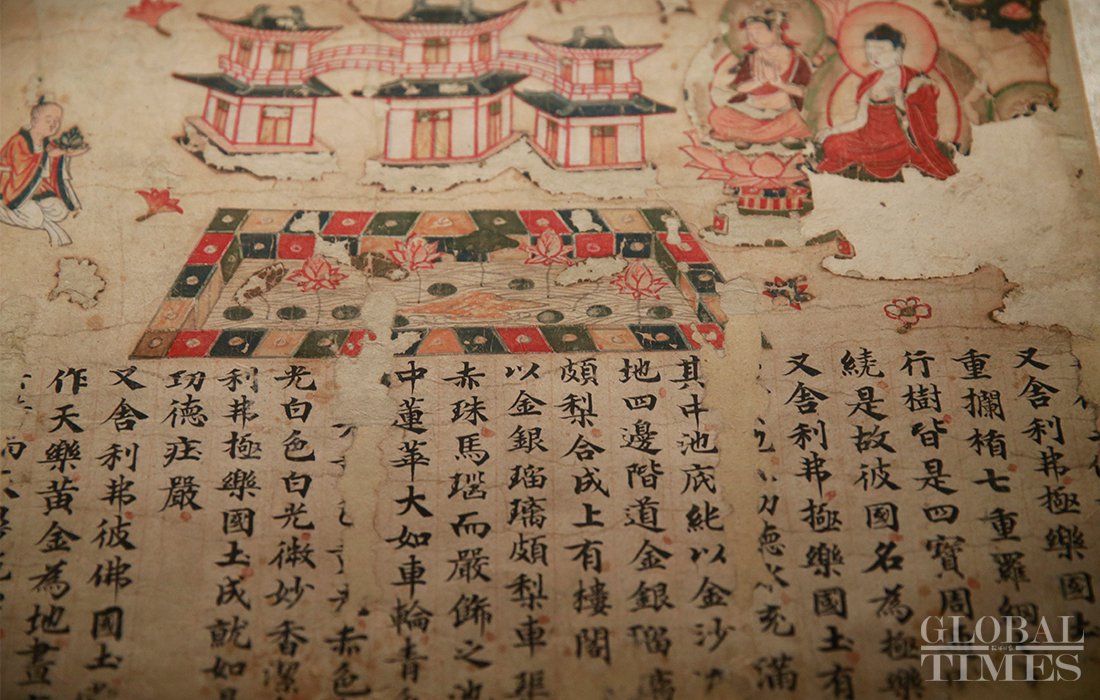 又舍利弗極樂國土
重攔楯七重羅網
行樹皆是四寶周
繞是故彼國名為極樂
又舍利弗極樂國土有
功德水充滿
其中池底純以金沙
地四邊階道金銀瑠璃
頗梨合成上有樓閣
以金銀瑠璃頗梨車璖
赤珠馬瑙而嚴飾之池
中蓮華大如車輪青
赤色
光白色白光微妙香潔
利弗極樂國土成就如是
功德庄嚴
又舍利弗彼佛國土
作天樂黃金為地晝
GLOBAL
TIMES